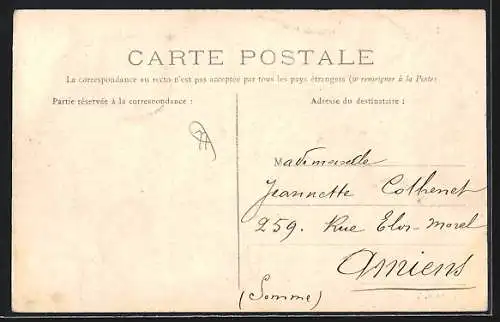 CARTE POSTALE
La correspondance au recto n'est pas acceptée par tous les pays étrangers (se renseigner à la Poste)
Partie réservée à la correspondance :
Adresse du destinataire :
Mademoiselle
Jeannette Cothenet
259. Rue Eloi-Morel
Amiens
(Somme)